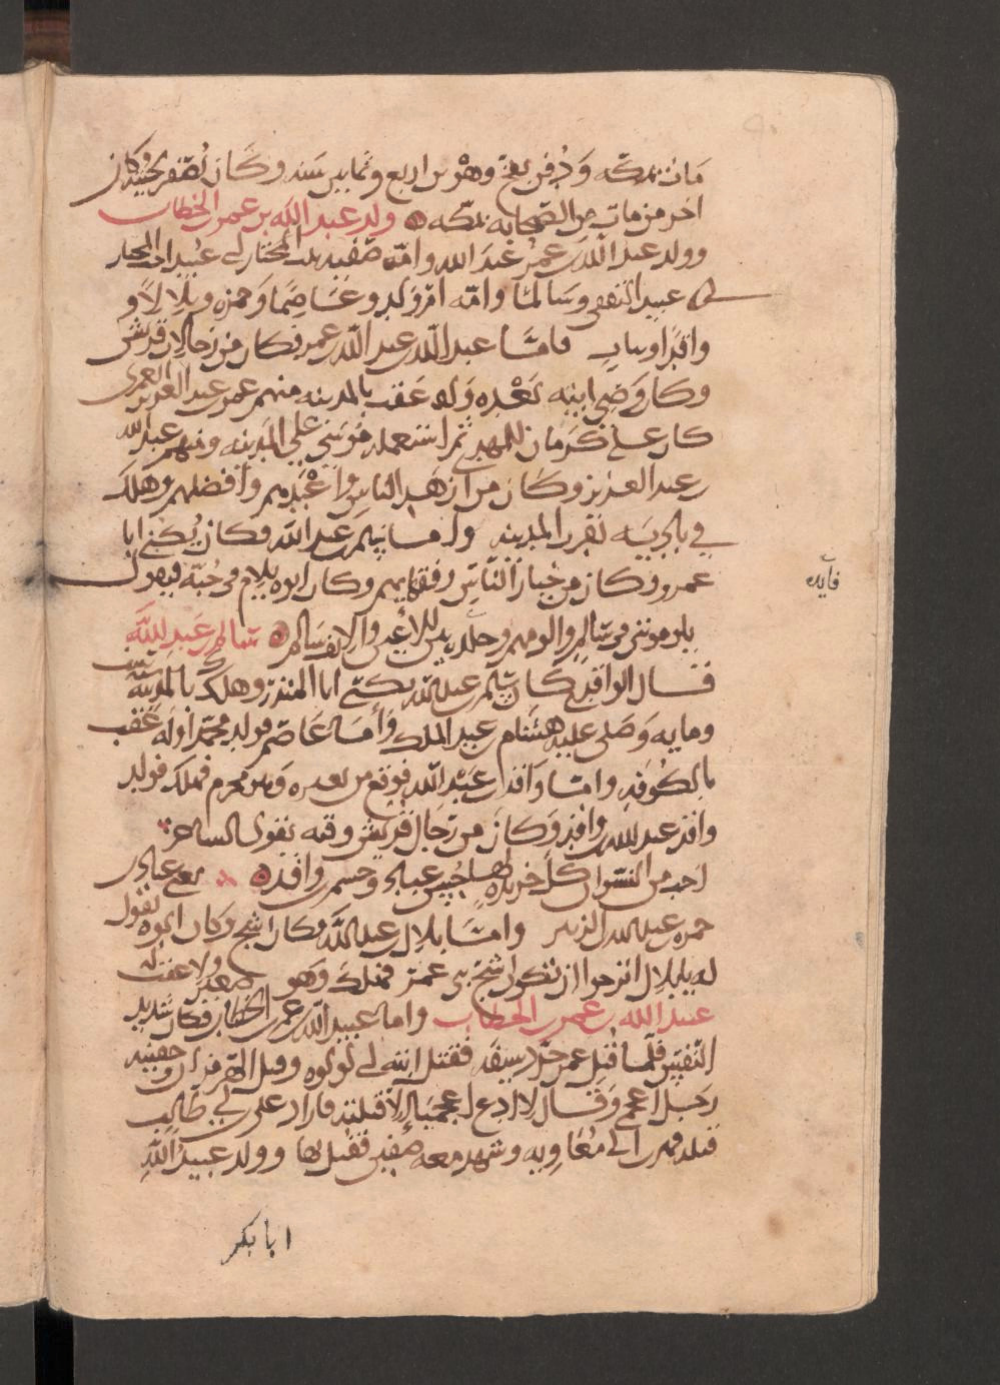 مات بمكه ودُفن بفخ وهو بن اربع وثمانين سنه وكان يُصفر لحيته وكان
اخر من مات من الصحابه بمكه ولد عبد الله بن عمر الخطاب
وولد عبد الله بن عمر عبد الله وامه صفيه بنت المختار بي عبيد اخت المختار
بن عبيد الثقفي وسالما وامه ام ولد وعاصما وحمزه وبلالا و
واقدا وبنات فامّا عبد الله بن عبد الله بن عمر فكان من رجال قريش
وكان وصي ابيه بعده وله عقب بالمدينه منهم عمر بن عبد العزيز العمري
كان على كرمان للمهدي ثم استعمله موسى على المدينه ومنهم عبد الله
بن عبد العزيز وكان من ازهد الناس واعبدهم وافضلهم وهلك
في باديه بقرب المدينه وامّا سالم بن عبد الله فكان يُكنى ابا
عمرو وكان من خيار الناس وفقهايهم وكان ابوه يلام في حُبّه فيقول
فايده
يلومونني في سالم والومهم وجلدة بين العين والانف سالم سالم بن عبد لله
قال الواقدي كان سالم بن عبد الله يكنى ابا المنذر وهلك بالمدينه سنه ست
ومايه وصلى عليه هشام بن عبد الملك وأمّا عاصم فولد محمدا وله عقب
بالكوفه وامّا واقد بن عبد الله فوقع من بعيره وهو محرم فهلك فولد
واقد عبد الله بن واقد وكان من رجال قريش وفيه يقول الشاعر
احب من النسوان كل خريدة لها حُسن عباد وجسم بن واقد يعني عباد بن
حمزه بن عبد الله بن الزبير وامّا بلال بن عبد الله فكان اشج وكان ابوه يقول
له يا بلال انا نرجوا ان تكون اشج بني عمر فهلك وهو صغير ولا عقب له
عبيد الله بن عمر بن الخطاب واما عبيد الله بن عمر بن الخطاب فكان شديد
البطش فلما قُتل عمر جرّد سيفه فقتل ابنه ابي لولوه وقتل الهرمزان وجفينه
رجل اعجمي وقال لا ادع اعجميا إلا قتلته فاراد علي بن ابي طالب
قتله فهرب الى معاويه وشهد معه صفين فقُتل بها وولد عبيد الله
ابا بكر